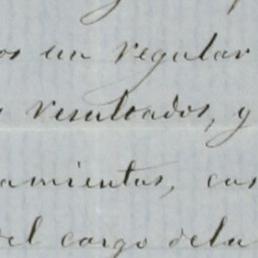 os un regular
s resultados, y
amientos, cas
del cargo dela